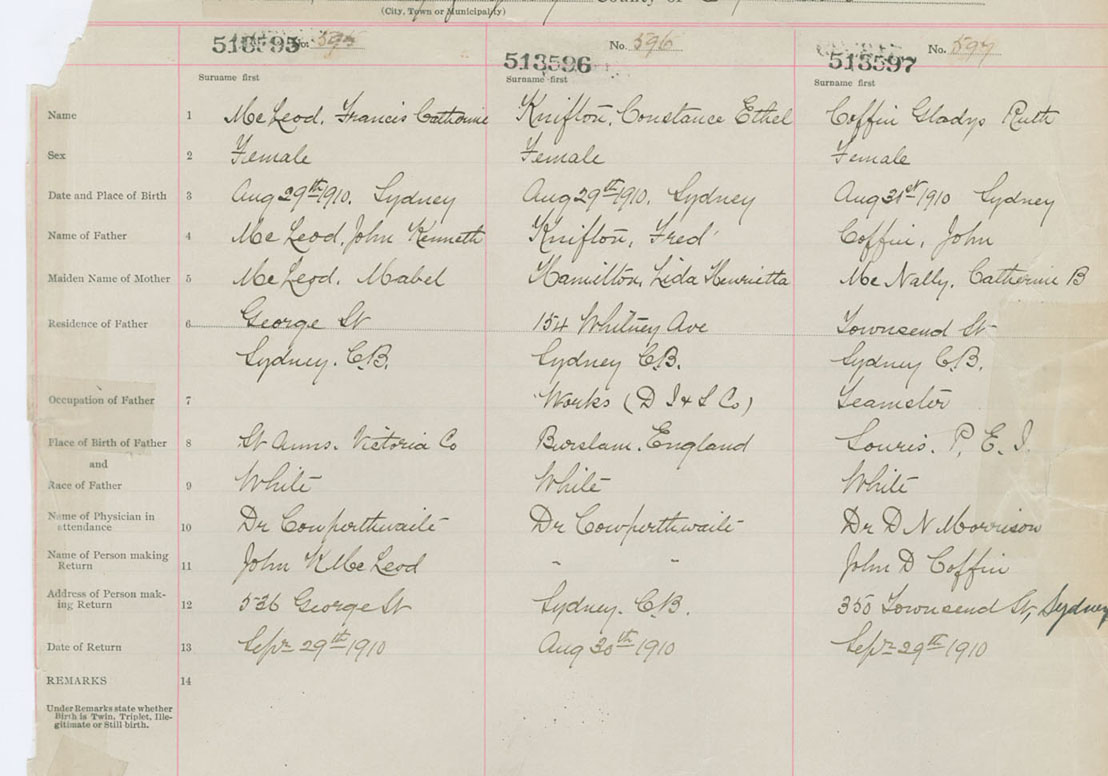 County of
(City, Town or Municipality)
513595 No. 595
513596 No. 596
513597 No. 597
Surname first Surname first Surname first
Name 1 McLeod, Francis Catherine Knifton, Constance Ethel Coffin Gladys Ruth
Sex 2 Female Female Female
Date and Place of Birth 3 Aug 29th 1910. Sydney Aug 29th 1910. Sydney Aug 31st 1910 Sydney
Name of Father 4 McLeod, John Kenneth Knifton, Fred Coffin, John
Maiden Name of Mother 5 McLeod, Mabel Hamilton, Lida Henrietta McNally, Catherine B
Residence of Father 6 George St 154 Whitney Ave Townsend St
Sydney. C.B. Sydney C.B. Sydney C.B.
Occupation of Father 7 Works (D I & S Co) Teamster
Place of Birth of Father 8 St Anns. Victoria Co Burslam. England Souris. P. E. I.
and
Race of Father 9 White White White
Name of Physician in
attendance 10 Dr Cowperthwaite Dr Cowperthwaite Dr D N Morrison
Name of Person making
Return 11 John K McLeod " " John D Coffin
Address of Person mak-
ing Return 12 536 George St Sydney. C.B. 350 Townsend St, Sydney
Date of Return 13 Sepr 29th 1910 Aug 30th 1910 Sepr 29th 1910
REMARKS 14
Under Remarks state whether
Birth is Twin, Triplet, Ille-
gitimate or Still birth.